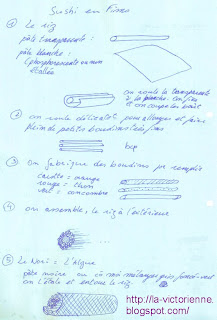 Sushi en Fimo
① Le riz
pâte transparente :
pâte blanche :
(phosphorescente ou non
étalée
on roule la transparente
ds la blanche. Les fins
et on coupe les bouts
② on roule délicatᵗ pour allonger et faire
plein de petits boudins très fins
bcp
③ on fabrique des boudins pr remplir
carotte = orange
rouge = thon
vert = concombre
④ on assemble, le riz à l'extérieur
⑤ Le Nori = L'Algue
pâte noire ou
on l'étale et entoure le riz
http://la-victorienne.
blogspot.com/